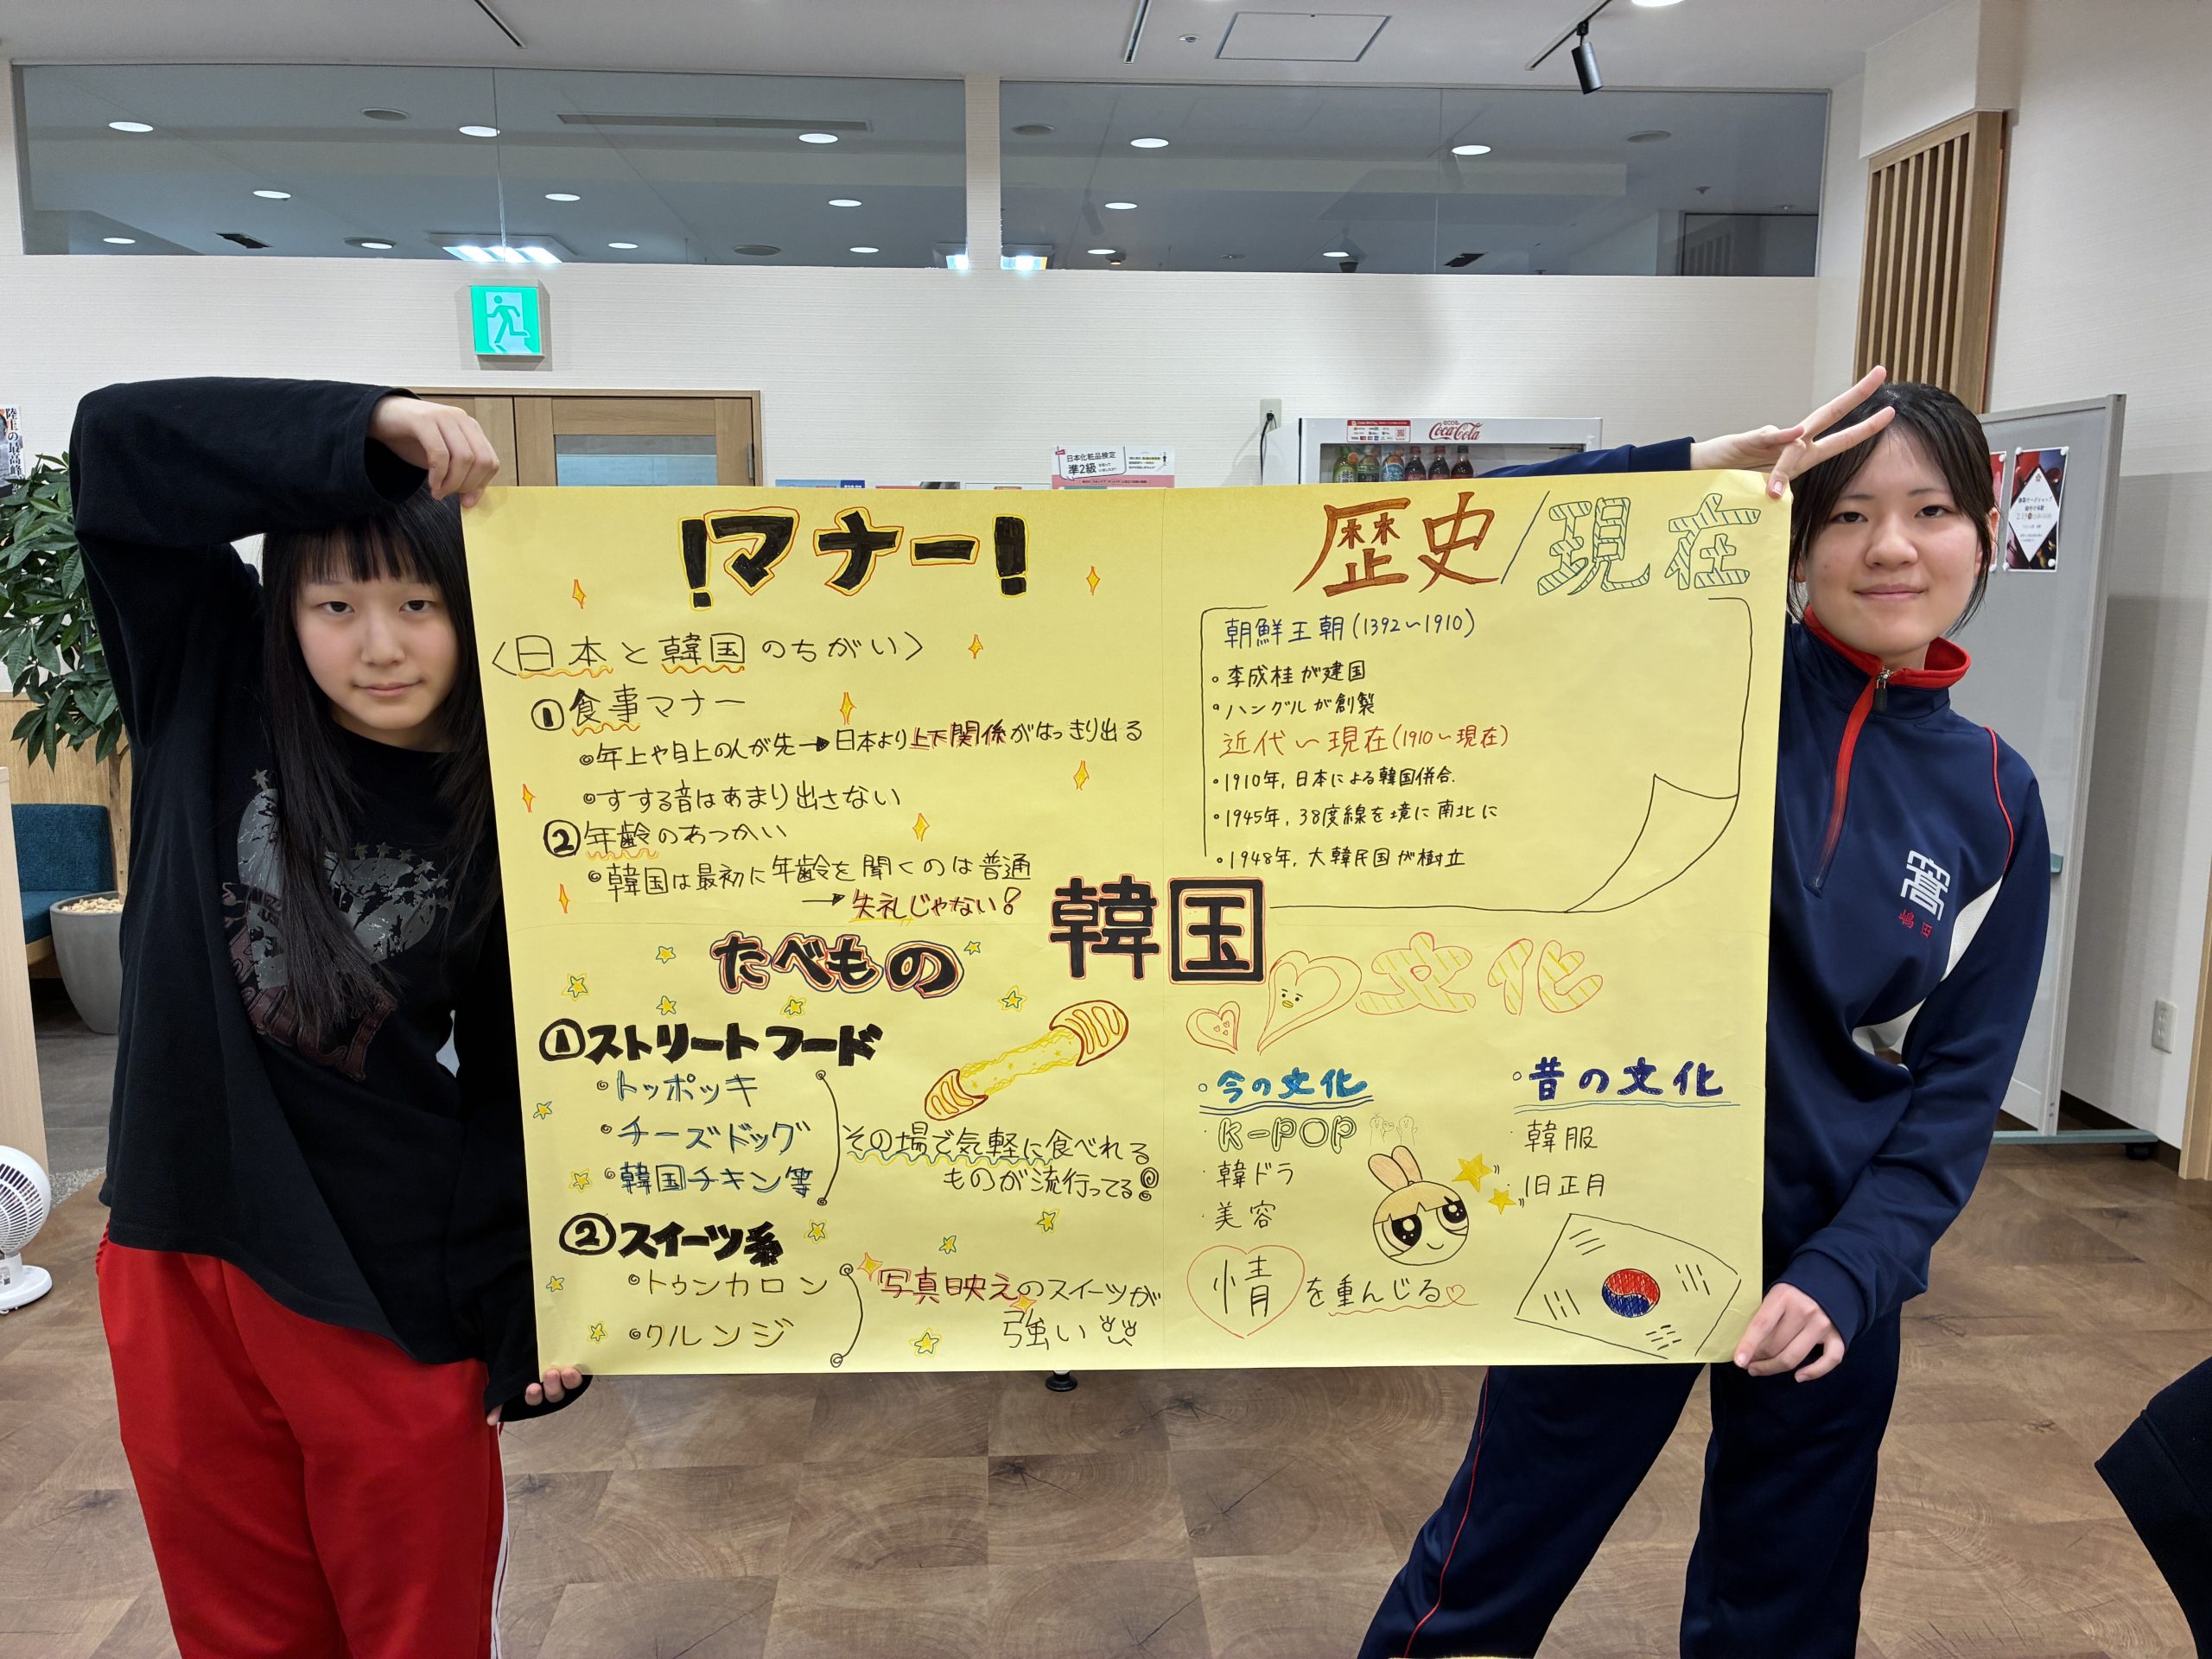 !マナー!
〈日本と韓国のちがい〉
①食事マナー
◎年上や目上の人が先→日本より上下関係がはっきり出る
◎すする音はあまり出さない
②年齢のあつかい
◎韓国は最初に年齢を聞くのは普通
→失礼じゃない!
歴史/現在
朝鮮王朝(1392〜1910)
。李成桂が建国
。ハングルが創製
近代〜現在(1910〜現在)
・1910年,日本による韓国併合.
・1945年,38度線を境に南北に
・1948年,大韓民国が樹立
韓国
たべもの
①ストリートフード
◎トッポッキ
◎チーズドッグ
◎韓国チキン等
その場で気軽に食べれる
ものが流行ってる!
②スイーツ系
◎トゥンカロン
◎クルンジ
写真映えのスイーツが
強い
文化
・今の文化
・K-POP
・韓ドラ
・美容
。昔の文化
・韓服
・旧正月
情を重んじる
Coca-Cola
日本化粧品検定
準2級
陸王の最高峰
嶋田